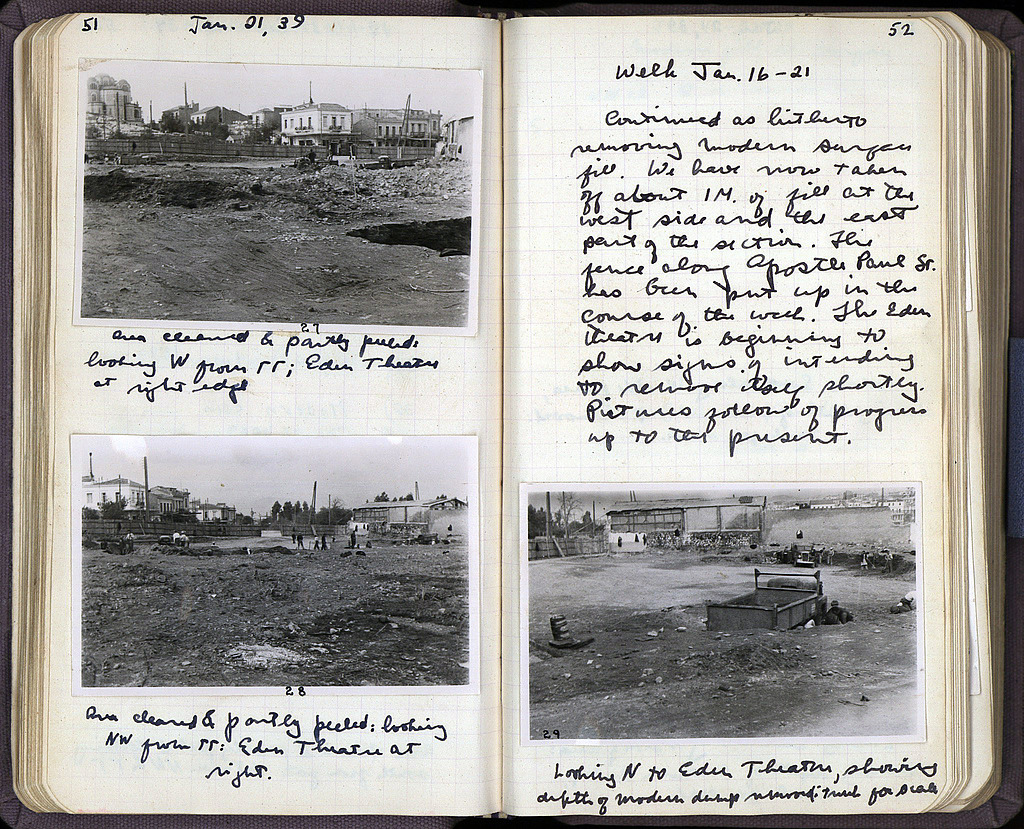 51 Jan. 21, 39
27
Area cleared & partly peeled:
looking W from ΓΓ; Eden Theatre
at right edge
28
Area cleared & partly peeled: looking
NW from ΓΓ: Eden Theatre at
right.
52
Week Jan. 16-21
Continued as hitherto
removing modern surface
fill. We have now taken
off about 1 M. of fill at the
west side and the east
part of the section. The
fence along Apostle Paul St.
has been put up in the
course of the week. The Eden
theatre is beginning to
show signs of intending
to remove itself shortly.
Pictures follow of progress
up to the present.
29
Looking N to Eden Theatre, showing
depth of modern dump removed: truck for scale